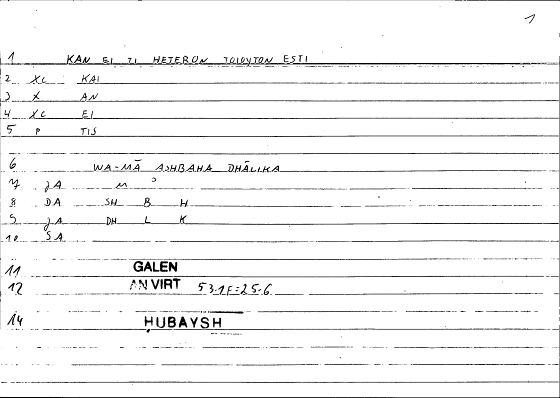 1
1 KAN EI TI HETERON TOIOYTON ESTI
2 XC KAI
3 X AN
4 XC EI
5 P TIS
6 WA-MĀ ASHBAHA DHĀLIKA
7 JA M
8 DA SH B H
9 JA DH L K
10 SA
11 GALEN
12 AN VIRT 53.1F=25.6
14 ḤUBAYSH